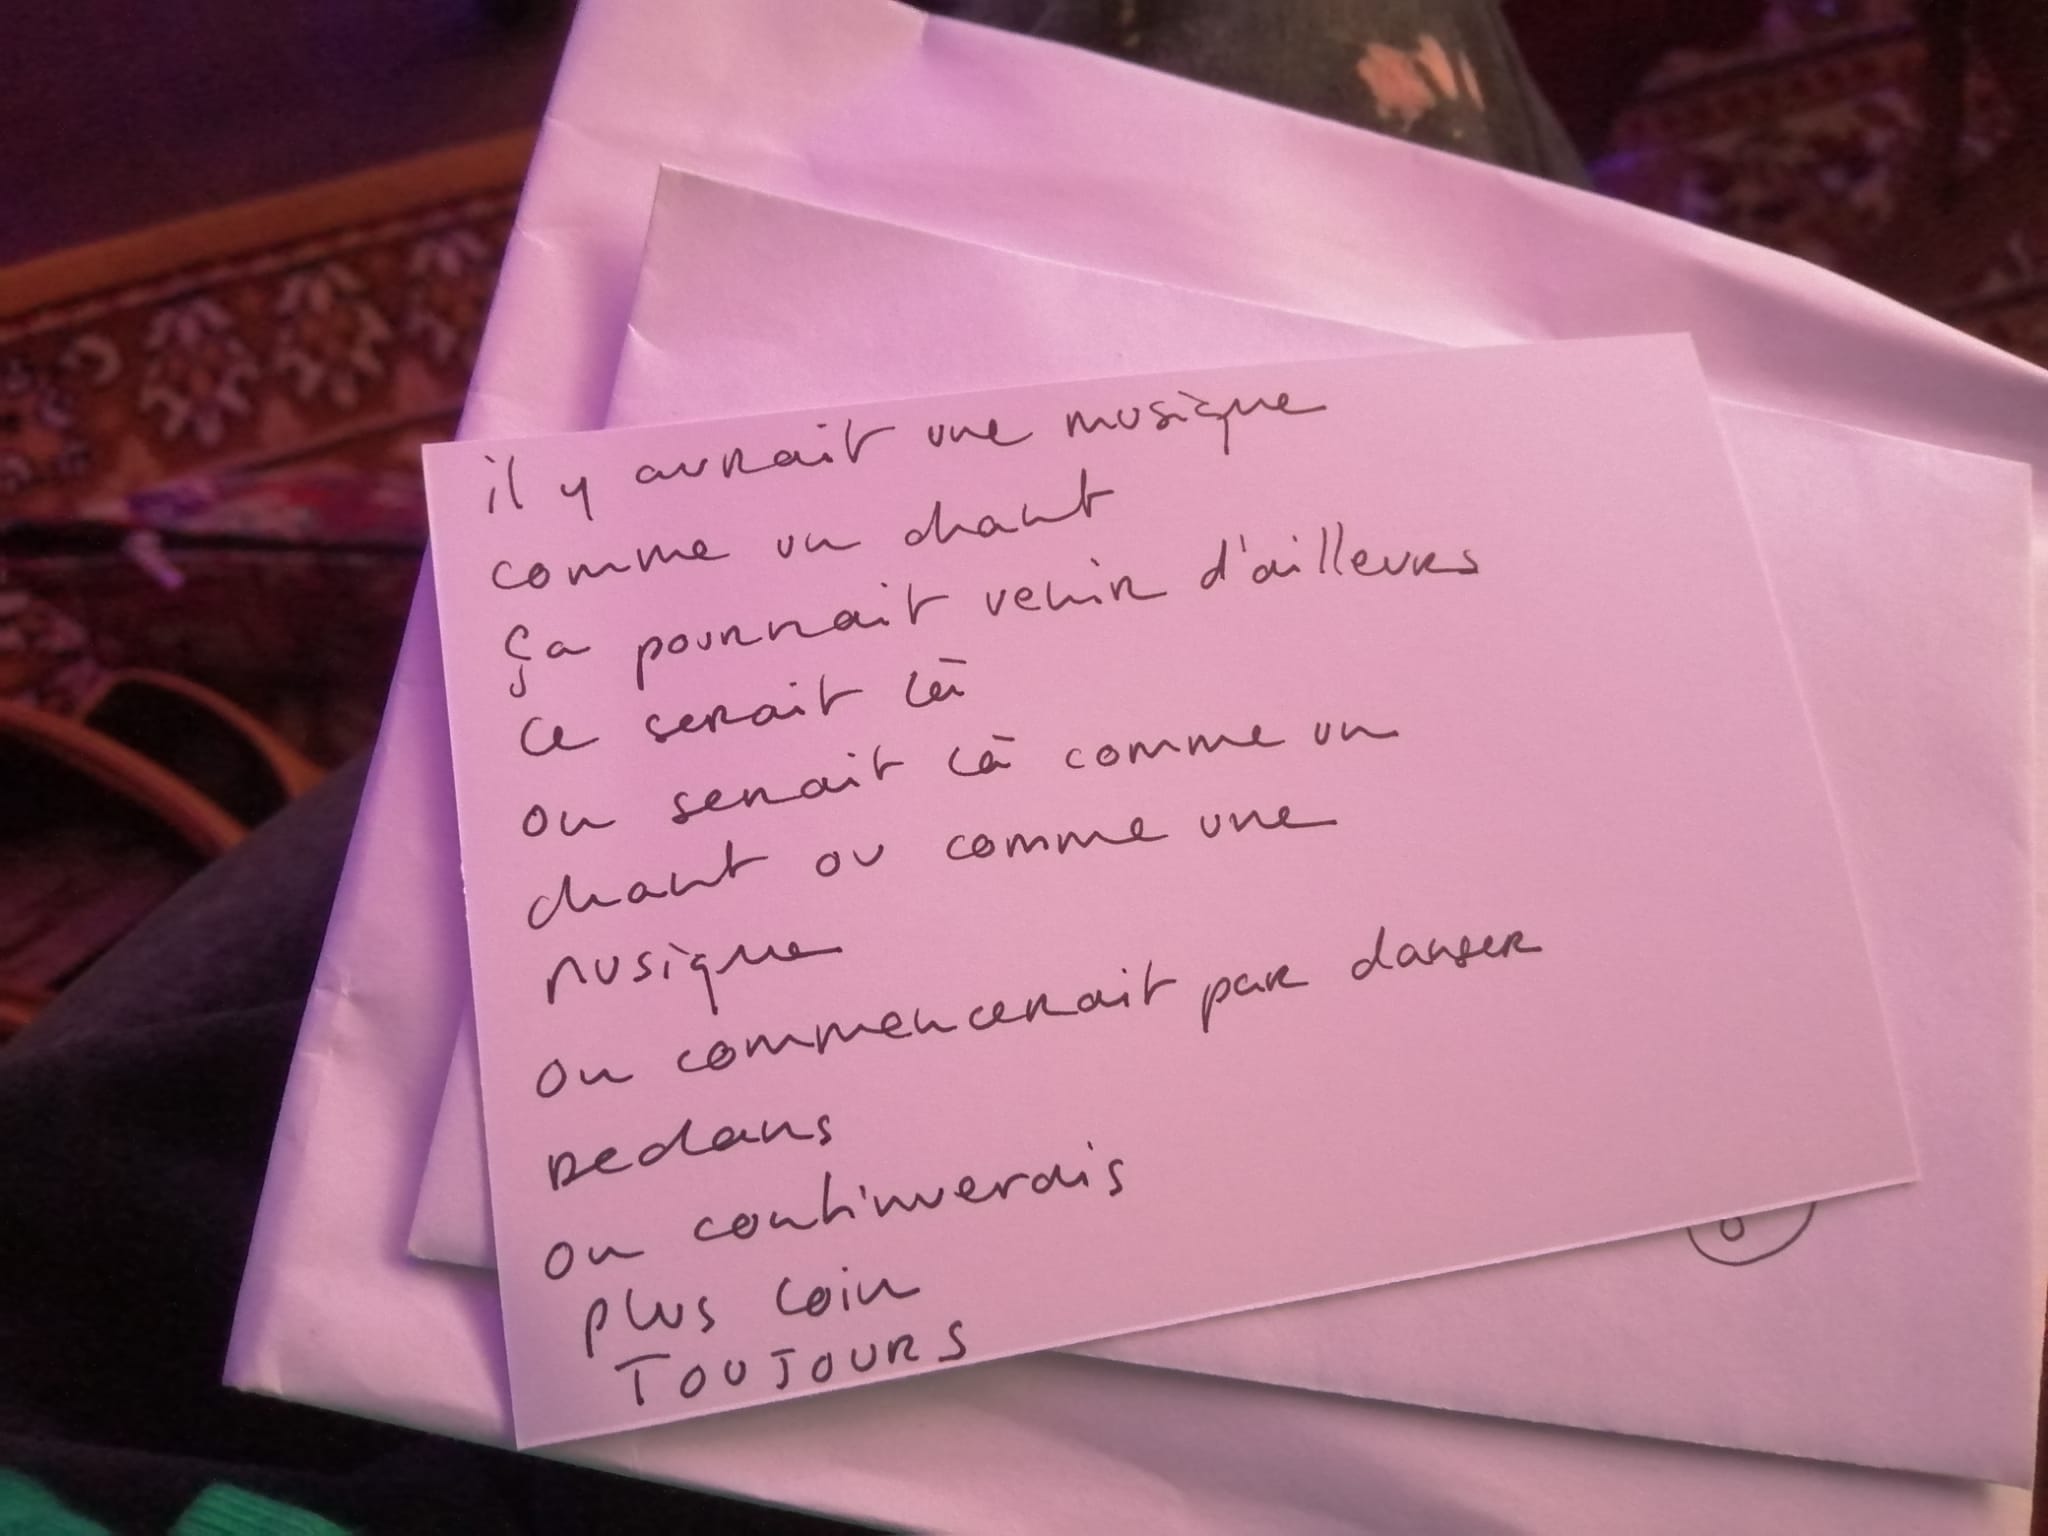 il y aurait une musique
comme un chant
ça pourrait venir d'ailleurs
ce serait là
on serait là comme un
chant ou comme une
musique
on commencerait par danser
dedans
on continuerais
plus loin
TOUJOURS